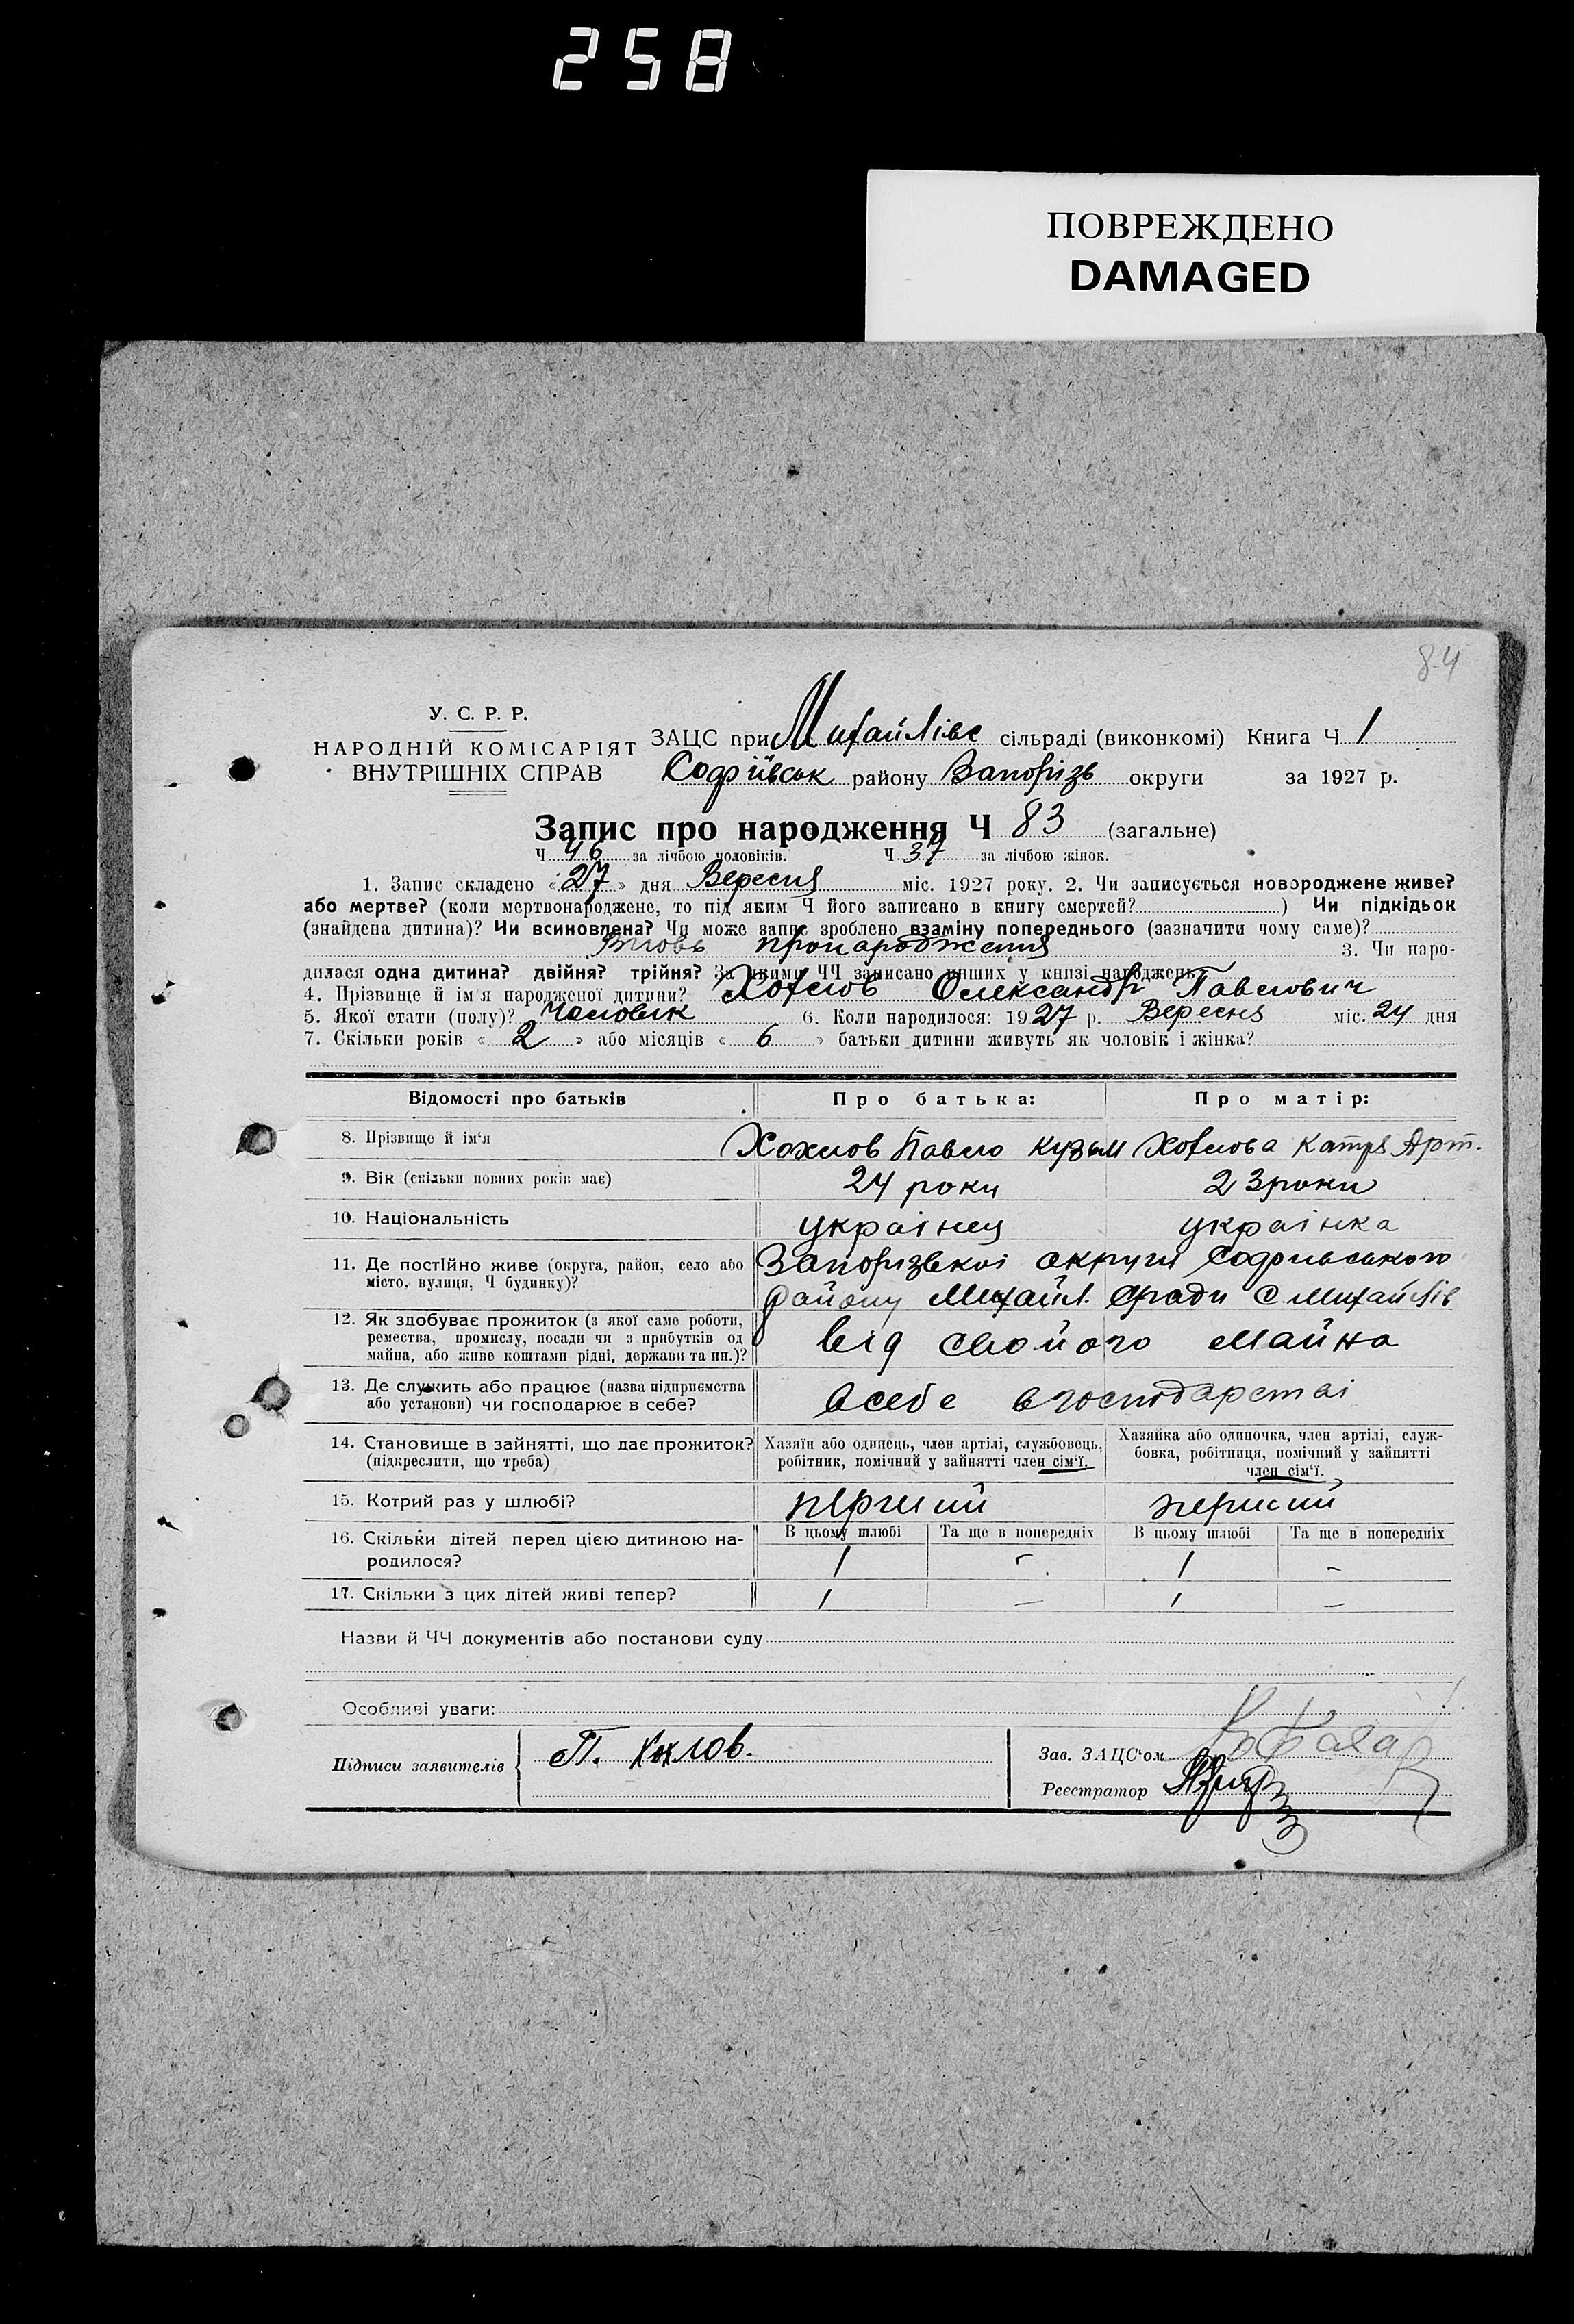 258
ПОВРЕЖДЕНО
DAMAGED
84
У. С. Р. Р.
НАРОДНІЙ КОМІСАРІЯТ
ВНУТРІШНІХ СПРАВ
ЗАЦС при Михайлівс сільраді (виконкомі) Книга Ч 1
Софіївськ району Запорізь округи за 1927 р.
Запис про народження Ч 83 (загальне)
Ч 46 за лічбою чоловіків. Ч 37 за лічбою жінок.
1. Запис складено «27» дня Вересня міс. 1927 року. 2. Чи записується новороджене живе?
або мертве? (коли мертвонароджене, то під яким Ч його записано в книгу смертей?) Чи підкідьок
(знайдена дитина)? Чи всиновлена? Чи може запис зроблено взаміну попереднього (зазначити чому саме)?
Вновь пронародження 3. Чи наро-
дилася одна дитина? двійня? трійня? За якими ЧЧ записано инших у книзі народжень
4. Прізвище й ім'я народженої дитини? Хохлов Олександр Павлович
5. Якої стати (полу)? Чоловік 6. Коли народилося: 1927 р. Вересня міс. 24 дня
7. Скільки років «2» або місяців «6» батьки дитини живуть як чоловік і жінка?
Відомості про батьків Про батька: Про матір:
8. Прізвище й ім'я Хохлов Павло Кузьм Хохлова Катря Арт.
9. Вік (скільки повних років має) 24 роки 23 роки
10. Національність українец українка
11. Де постійно живе (округа, район, село або
місто, вулиця, Ч будинку)?
Запорізької округи Софиівського
району Михайл. сради с Михайлів
12. Як здобуває прожиток (з якої саме роботи,
ремества, промислу, посади чи з прибутків од
майна, або живе коштами рідні, держави та ин.)?
від свойого майна
13. Де служить або працює (назва підприємства
або установи) чи господарює в себе?
всебе в господарстві
14. Становище в зайнятті, що дає прожиток?
(підкреслити, що треба)
Хазяїн або одинець, член артілі, службовець,
робітник, помічний у зайнятті член сім'ї.
Хазяйка або одиночка, член артілі, служ-
бовка, робітниця, помічний у зайнятті
член сім'ї.
15. Котрий раз у шлюбі? перший перший
16. Скільки дітей перед цією дитиною на-
родилося?
В цьому шлюбі Та ще в попередніх В цьому шлюбі Та ще в попередніх
1 - 1 -
17. Скільки з цих дітей живі тепер? 1 — 1 —
Назви й ЧЧ документів або постанови суду
Особливі уваги:
Підписи заявителів П. Хохлов.
Зав. ЗАЦС'ом
Реєстратор